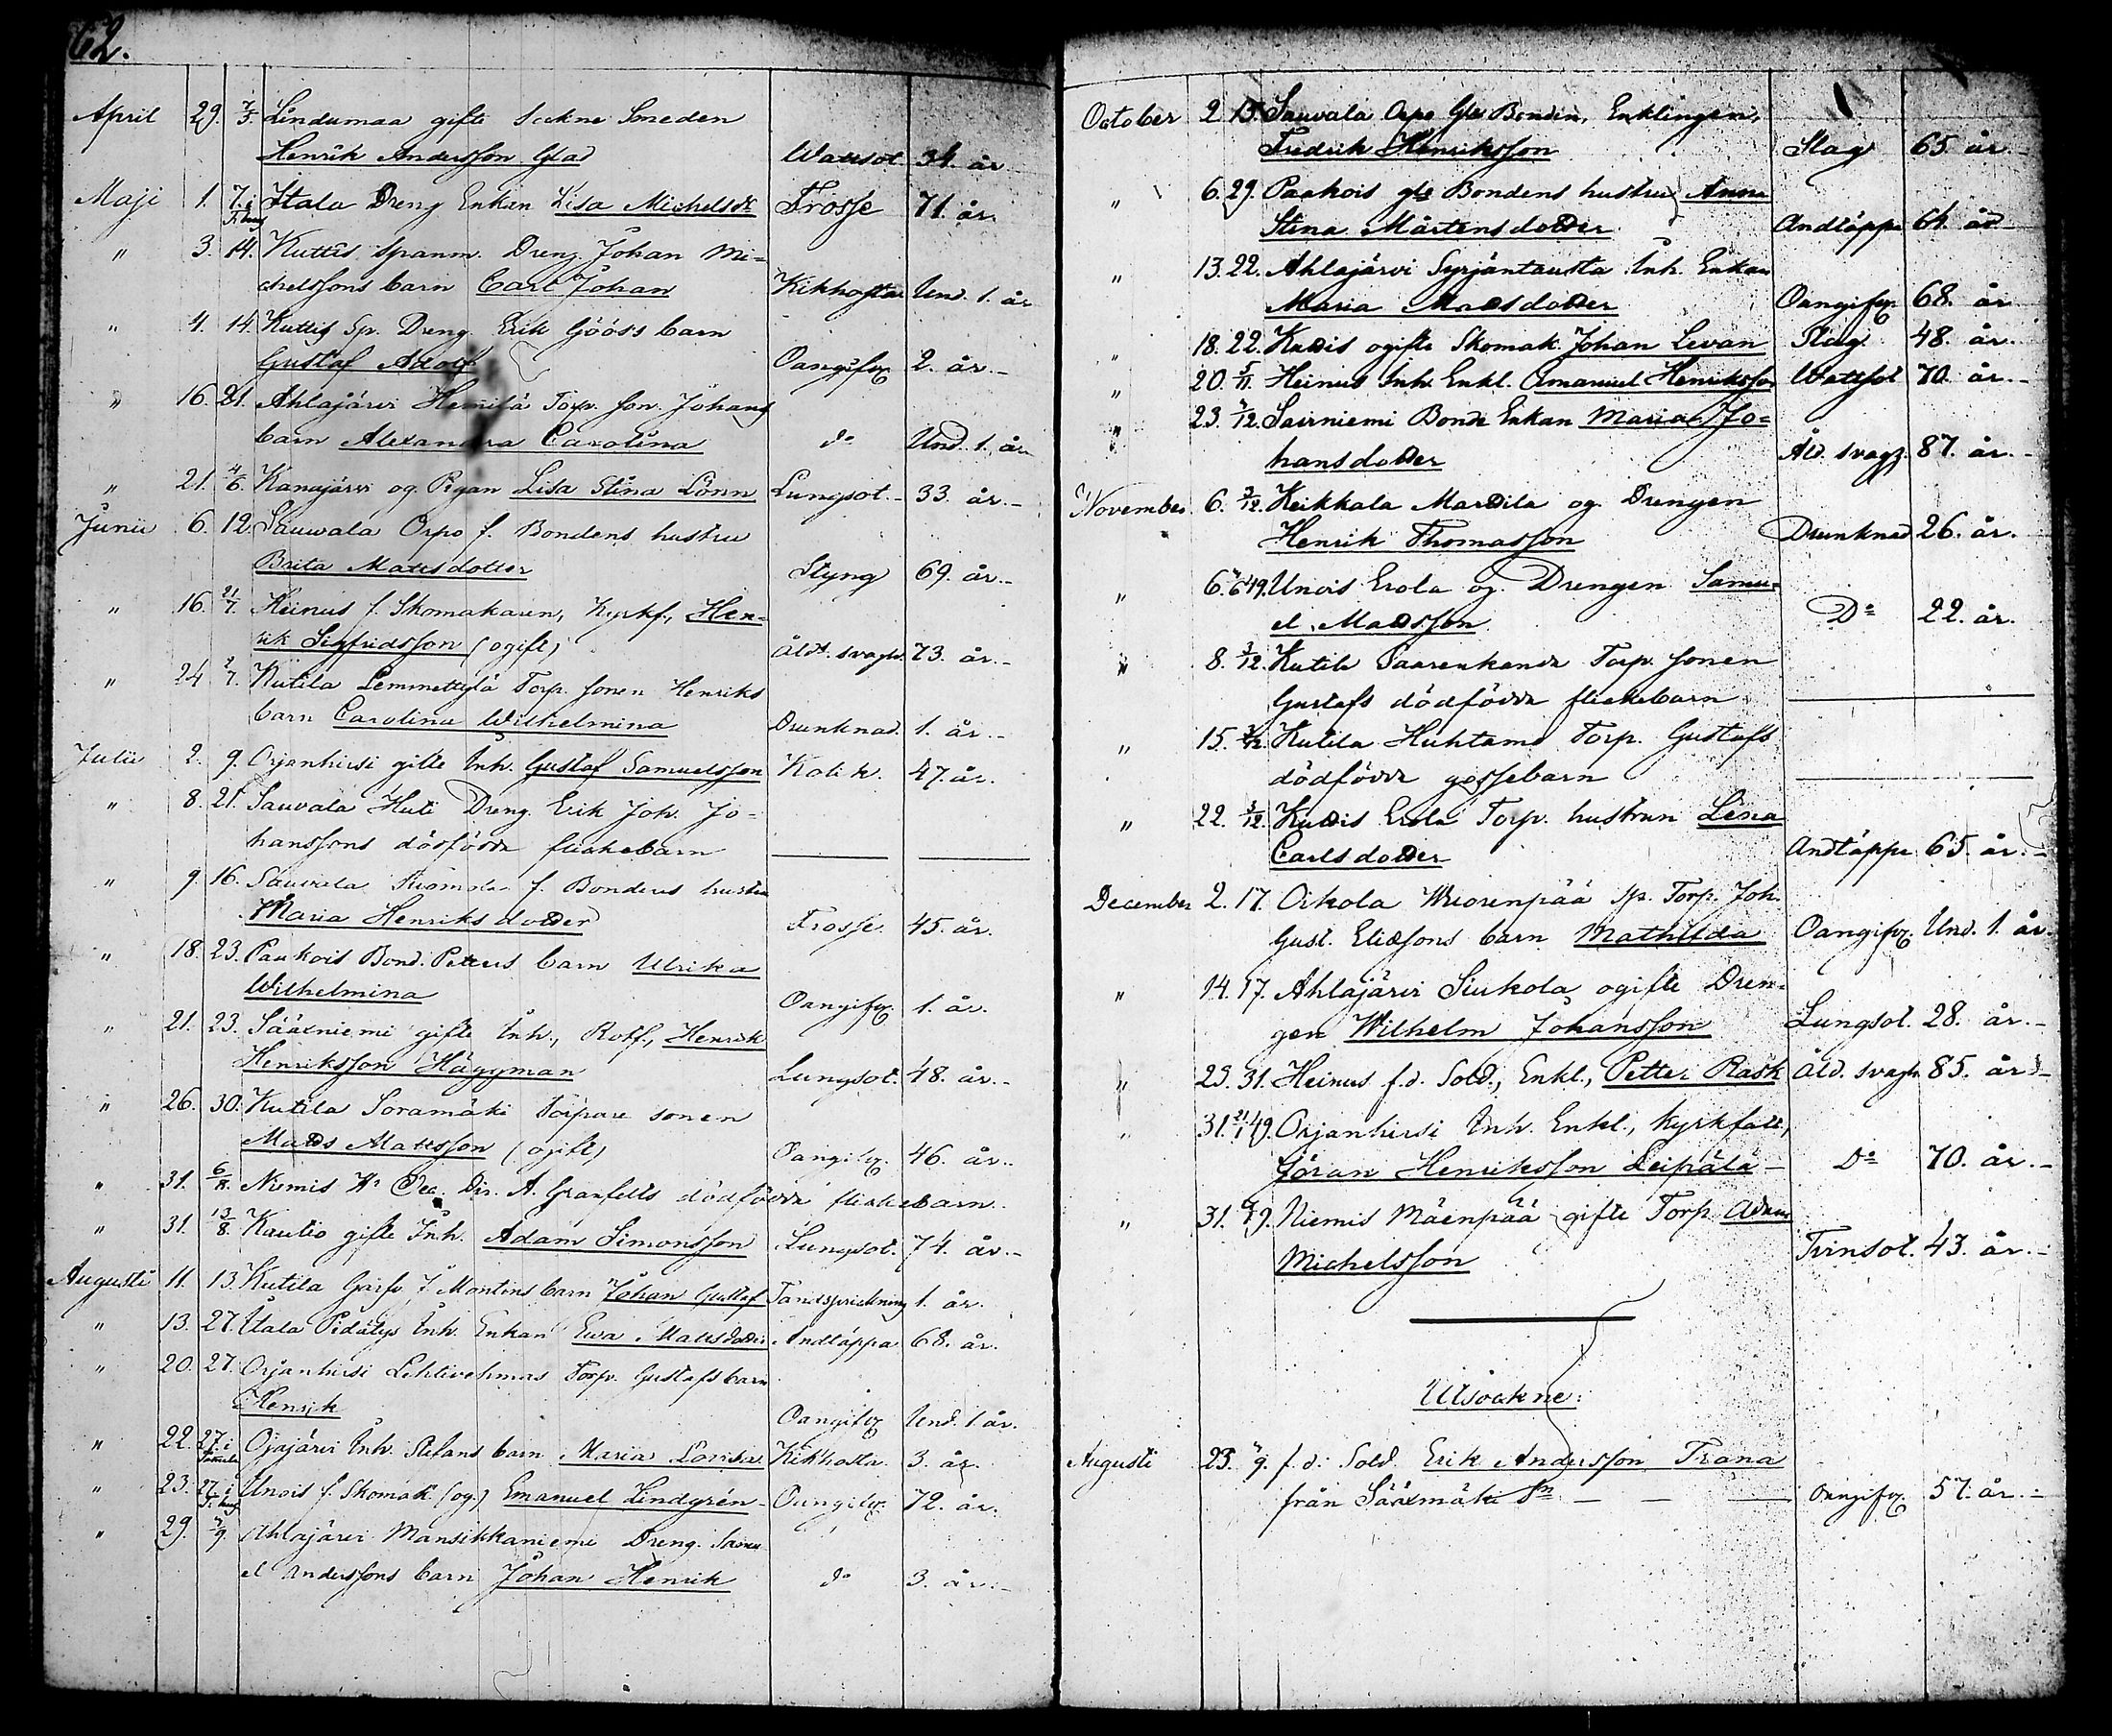 62.
April 29. 7/5. Lindumaa gifte Sockne Smeden
Henrik Andersson Glad Wattsot. 34. år
Maji 1. 7. i Itala Dreng Enkan Lisa Michelsdr Frosse 71. år
" 3. 14. Kuttis spanm. Dreng. Johan Mi-
chelssons barn Carl Johan Kikhosta Und. 1. år
" 4. 14. Kuttis Sp. Dreng. Erik Gööss barn
Gustaf Adolf Oangifv. 2. år.-
" 16. 21. Ahlajärvi Torp. son Johans
barn Alexandra Carolina do Und. 1. år
" 21. 4/6. Kanajärvi og. Pigan Lisa Stina Lönn Lungsot.- 33. år.-
Junii 6. 12. Sauwala Orpo f. Bondens hustru
Brita Mattsdotter Styng 69. år.-
" 16. 21/7. Heinus f. Skomakaren, Kyrkf., Hen-
rik Sigfridsson (ogift) Åldr. svagh. 73. år.-
" 24 2/7. Kutila Lemmettylä Torp. sonen Henriks
barn Carolina Wilhelmina Drunknad. 1. år.-
Julii 2. 9. Orjanhirsi gifte Inh. Gustaf Samuelsson Kolik. 47. år.
" 8. 21. Sauvala Huti Dreng. Erik Joh. Jo-
hanssons dödfödda flickebarn
" 9. 16. Sauvala f. Bondens hustru
Maria Henriksdotter Frosse. 45. år.
" 18. 23. Paukois Bond. Petters barn Ulrika
Wilhelmina Oangifv. 1. år.
" 21. 23. Sääxniemi gifte Inh., Rotf., Henrik
Henriksson Häggman Lungsot. 48. år.-
" 26. 30. Kutila Soramäki Torpare sonen
Matts Mattsson (ogift) Oangifv. 46. år..
" 31. 6/8. Niemis Hr Dir. A. Granfelts dödfödda flickebarn..
" 31. 13/8. Kautio gifte Inh. Adam Simonsson Lungsot. 74. år.-
Augusti 11. 13. Kutila Garfv. J. Montins barn Johan Gustaf Tandsprickning 1. år.
" 13. 27. Itala Pidätys Inh. Enkan Ewa Mattsdotter Andtäppa 68. år.
" 20. 27. Orjanhirsi Lehtivehmas Torp. Gustafs barn
Henrik Oangifv. Und. 1 år.
" 22. 27. i Ojajärvi Inh. Stefans barn Maria Lovisa Kikhosta. 3. år.
" 23. 27. i Unois f. Skomak. (og.) Emanuel Lindgrén- Oangifv. 72. år.
" 29. 3/9. Ahlajärvi Mansikkaniemi Dreng. Samu-
el Anderssons barn Johan Henrik do 3. år.-
October 2 15. Sauvala Orpo Gle Bonden, Enklingen,
Fredrik Henriksson Slag 65. år.-
" 6. 29. Paakois gle Bondens hustru Anna
Stina Mårtensdotter Andtäppa 64. år-
" 13. 22. Ahlajärvi Syrjäntausta Inh. Enkan
Maria Mattsdotter Oangifv. 68. år
" 18. 22. Kuttis ogifte Skomak. Johan Levan Slag. 48. år.
" 20. 5/11. Heinus Inh. Enkl. Emanuel Henriksson Wattsot 70. år.-
" 23. 3/12. Sairniemi Bonde Enkan Maria Jo-
hansdotter Åld. svagh. 87. år.-
November 6. 3/12. Heikkala Marttila og. Drengen
Henrik Thomasson Drunknad 26. år.
" 6. Unois Erola og. Drengen Samu-
el Mattsson Do 22. år.
" 8. 3/12. Kutila Saarenkanda Torp. sonen
Gustafs dödfödda flickebarn
" 15. 3/12. Kutila Huhtamo Torp. Gustafs
dödfödda gossebarn
" 22. 3/12. Kuttis Erola Torp. hustrun Lena
Carlsdotter Andtäppa 65. år.-
December 2. 17. Oikola Wuorenpää sp. Torp. Joh.
Gust. Eliæsons barn Mathilda Oangifv. Und. 1. år.
" 14. 17. Ahlajärvi Siukola ogifte Dren-
gen Wilhelm Johansson Lungsot. 28. år.-
" 25. 31. Heinus f.d. Sold., Enkl., Petter Rask Åld. svagh 85. år.-
" 31. 21/1 49. Orjanhirsi Inh. Enkl., Kyrkfatt.,
Göran Henriksson Leipälä- Do 70. år.-
" 31. Niemis Mäenpää gifte Torp. Adam
Michelsson Tvinsot. 43. år.-
Utsockne:
Augusti 23. 3/9. f.d. Sold. Erik Andersson Trana
från Sääxmäki Sn Oangifv. 57. år.-